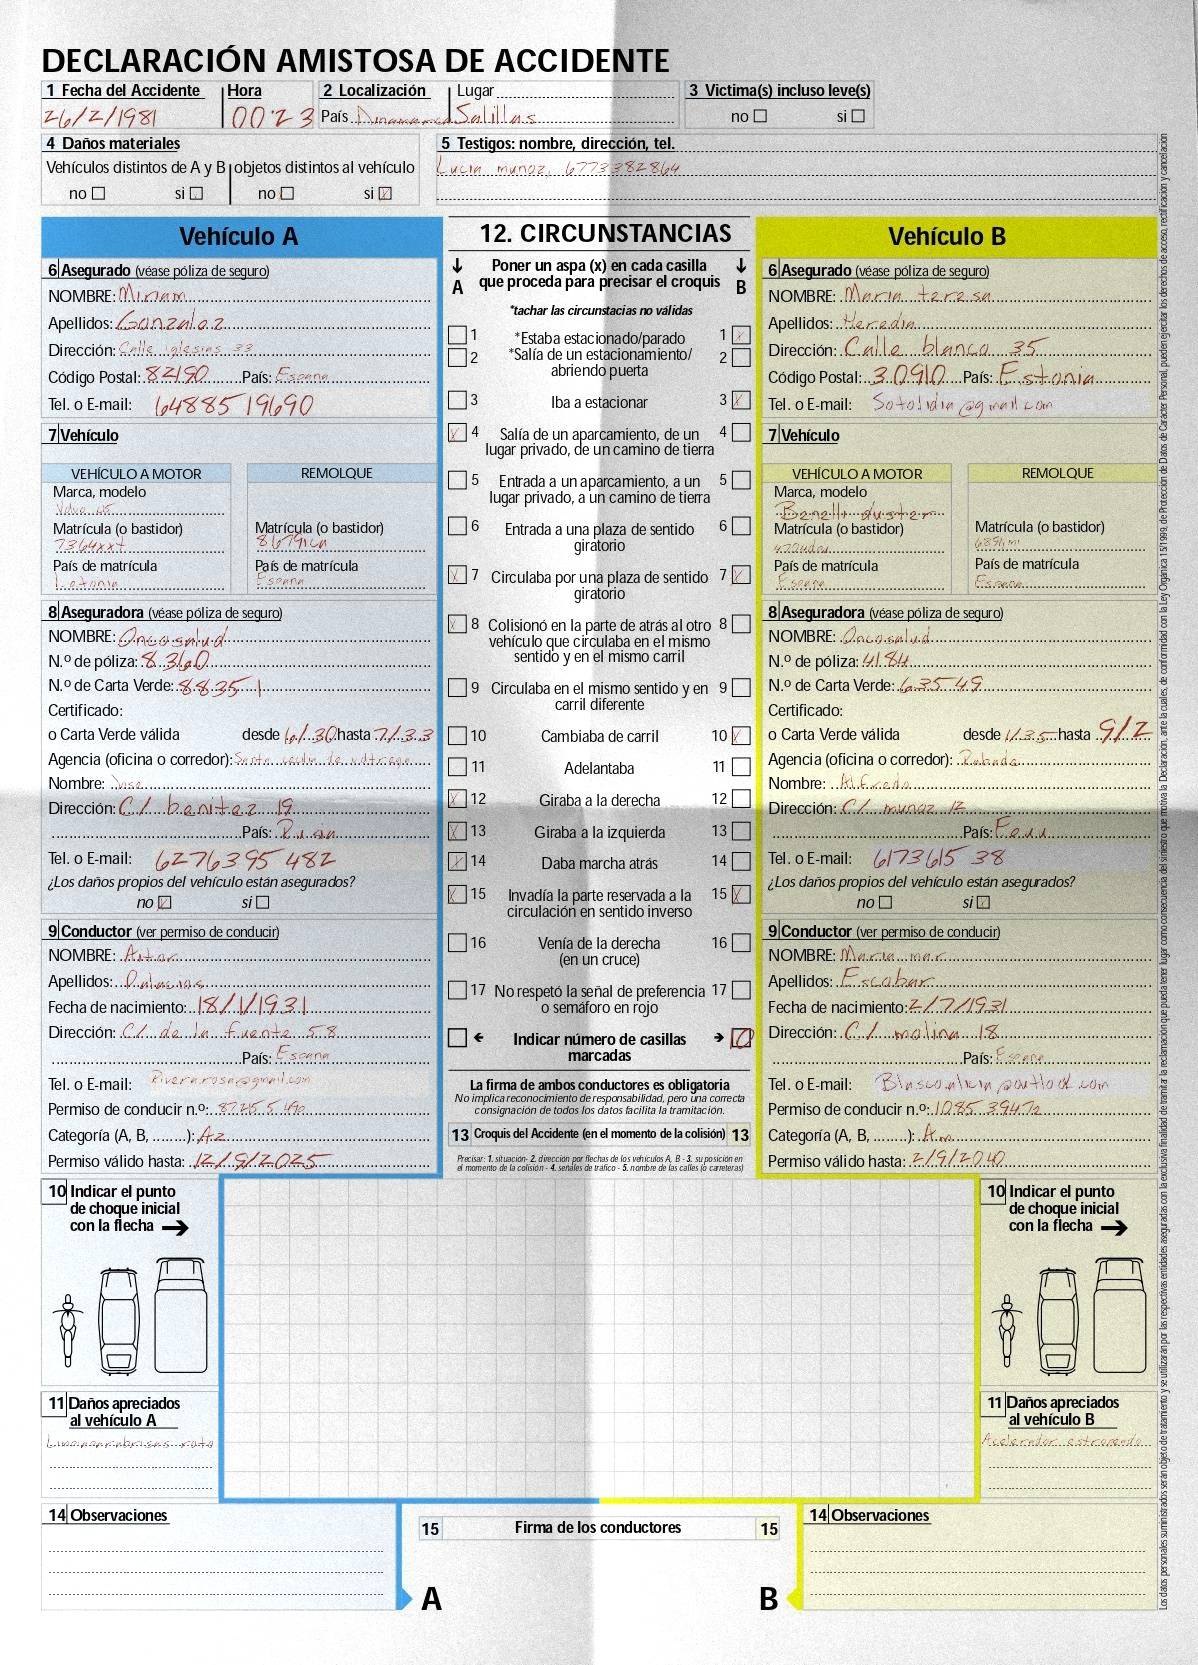 DECLARACIÓN AMISTOSA DE ACCIDENTE
1 Fecha del Accidente Hora 2 Localización Lugar 3 Victima(s) incluso leve(s)
26/2/1981 00:23 País Dinamarca Salillas no si
4 Daños materiales 5 Testigos: nombre, dirección, tel.
Vehículos distintos de A y B objetos distintos al vehículo Lucia munoz, 6773382864
no si no si X
Vehículo A
6 Asegurado (véase póliza de seguro)
NOMBRE: Miriam
Apellidos: Gonzalez
Dirección: Calle iglesias 33
Código Postal: 82190 País: Espana
Tel. o E-mail: 6488519690
7 Vehículo
VEHÍCULO A MOTOR REMOLQUE
Marca, modelo
Matrícula (o bastidor) Matrícula (o bastidor)
7364xxt
País de matrícula País de matrícula
Letonia Espana
8 Aseguradora (véase póliza de seguro)
NOMBRE: Oncosalud
N.º de póliza: 8360
N.º de Carta Verde: 88351
Certificado:
o Carta Verde válida desde 6/30 hasta 7/33
Agencia (oficina o corredor):
Nombre: Jose
Dirección: C/ benitez 19
País: Rusia
Tel. o E-mail: 6276395482
¿Los daños propios del vehículo están asegurados?
no X si
9 Conductor (ver permiso de conducir)
NOMBRE: Aitor
Apellidos: Palacios
Fecha de nacimiento: 18/1/1931
Dirección: C/ de la fuente 58
País: Espana
Tel. o E-mail: Rivera.rosa@gmail.com
Permiso de conducir n.º:
Categoría (A, B, ........): A2
Permiso válido hasta: 12/9/2025
12. CIRCUNSTANCIAS
A Poner un aspa (x) en cada casilla B
que proceda para precisar el croquis
*tachar las circunstacias no válidas
1 *Estaba estacionado/parado 1 X
2 *Salía de un estacionamiento/ 2
abriendo puerta
3 Iba a estacionar 3 X
X 4 Salía de un aparcamiento, de un 4
lugar privado, de un camino de tierra
5 Entrada a un aparcamiento, a un 5
lugar privado, a un camino de tierra
6 Entrada a una plaza de sentido 6
giratorio
X 7 Circulaba por una plaza de sentido 7 X
giratorio
X 8 Colisionó en la parte de atrás al otro 8
vehículo que circulaba en el mismo
sentido y en el mismo carril
9 Circulaba en el mismo sentido y en 9
carril diferente
10 Cambiaba de carril 10 X
11 Adelantaba 11
X 12 Giraba a la derecha 12
X 13 Giraba a la izquierda 13
X 14 Daba marcha atrás 14
X 15 Invadía la parte reservada a la 15 X
circulación en sentido inverso
16 Venía de la derecha 16
(en un cruce)
17 No respetó la señal de preferencia 17
o semáforo en rojo
Indicar número de casillas 10
marcadas
La firma de ambos conductores es obligatoria
No implica reconocimiento de responsabilidad, pero una correcta
consignación de todos los datos facilita la tramitación.
13 Croquis del Accidente (en el momento de la colisión) 13
Precisar: 1. situación- 2. dirección por flechas de los vehículos A, B - 3. su posición en
el momento de la colisión - 4. señales de tráfico - 5. nombre de las calles (o carreteras)
Vehículo B
6 Asegurado (véase póliza de seguro)
NOMBRE: Maria teresa
Apellidos: Heredia
Dirección: Calle blanco 35
Código Postal: 30910 País: Estonia
Tel. o E-mail: Sotolidia@gmail.com
7 Vehículo
VEHÍCULO A MOTOR REMOLQUE
Marca, modelo
Benelli duster
Matrícula (o bastidor) Matrícula (o bastidor)
País de matrícula País de matrícula
Espana Espana
8 Aseguradora (véase póliza de seguro)
NOMBRE: Oncosalud
N.º de póliza: 4184
N.º de Carta Verde: 63549
Certificado:
o Carta Verde válida desde 1/35 hasta 9/2
Agencia (oficina o corredor): Rabada
Nombre: Alfredo
Dirección: C/ munoz 12
País:
Tel. o E-mail: 617361538
¿Los daños propios del vehículo están asegurados?
no si X
9 Conductor (ver permiso de conducir)
NOMBRE: Maria mar
Apellidos: Escobar
Fecha de nacimiento: 2/7/1931
Dirección: C/ molina 18
País: Espana
Tel. o E-mail: Blascoalicia@outlook.com
Permiso de conducir n.º: 108539472
Categoría (A, B, ........): Am
Permiso válido hasta: 2/9/2040
10 Indicar el punto
de choque inicial
con la flecha
11 Daños apreciados
al vehículo A
Limpiaparabrisas roto
10 Indicar el punto
de choque inicial
con la flecha
11 Daños apreciados
al vehículo B
Acelerador estropeado
14 Observaciones
15 Firma de los conductores 15
A B
14 Observaciones
Los datos personales suministrados serán objeto de tratamiento y se utilizarán por las respectivas entidades aseguradas con la exclusiva finalidad de tramitar la reclamación que pueda tener lugar como consecuencia del siniestro que motiva la Declaración, ante la cuales, de conformidad con la Ley Orgánica 15/1999, de Protección de Datos de Carácter Personal, pueden ejercitar los derechos de acceso, rectificación y cancelación